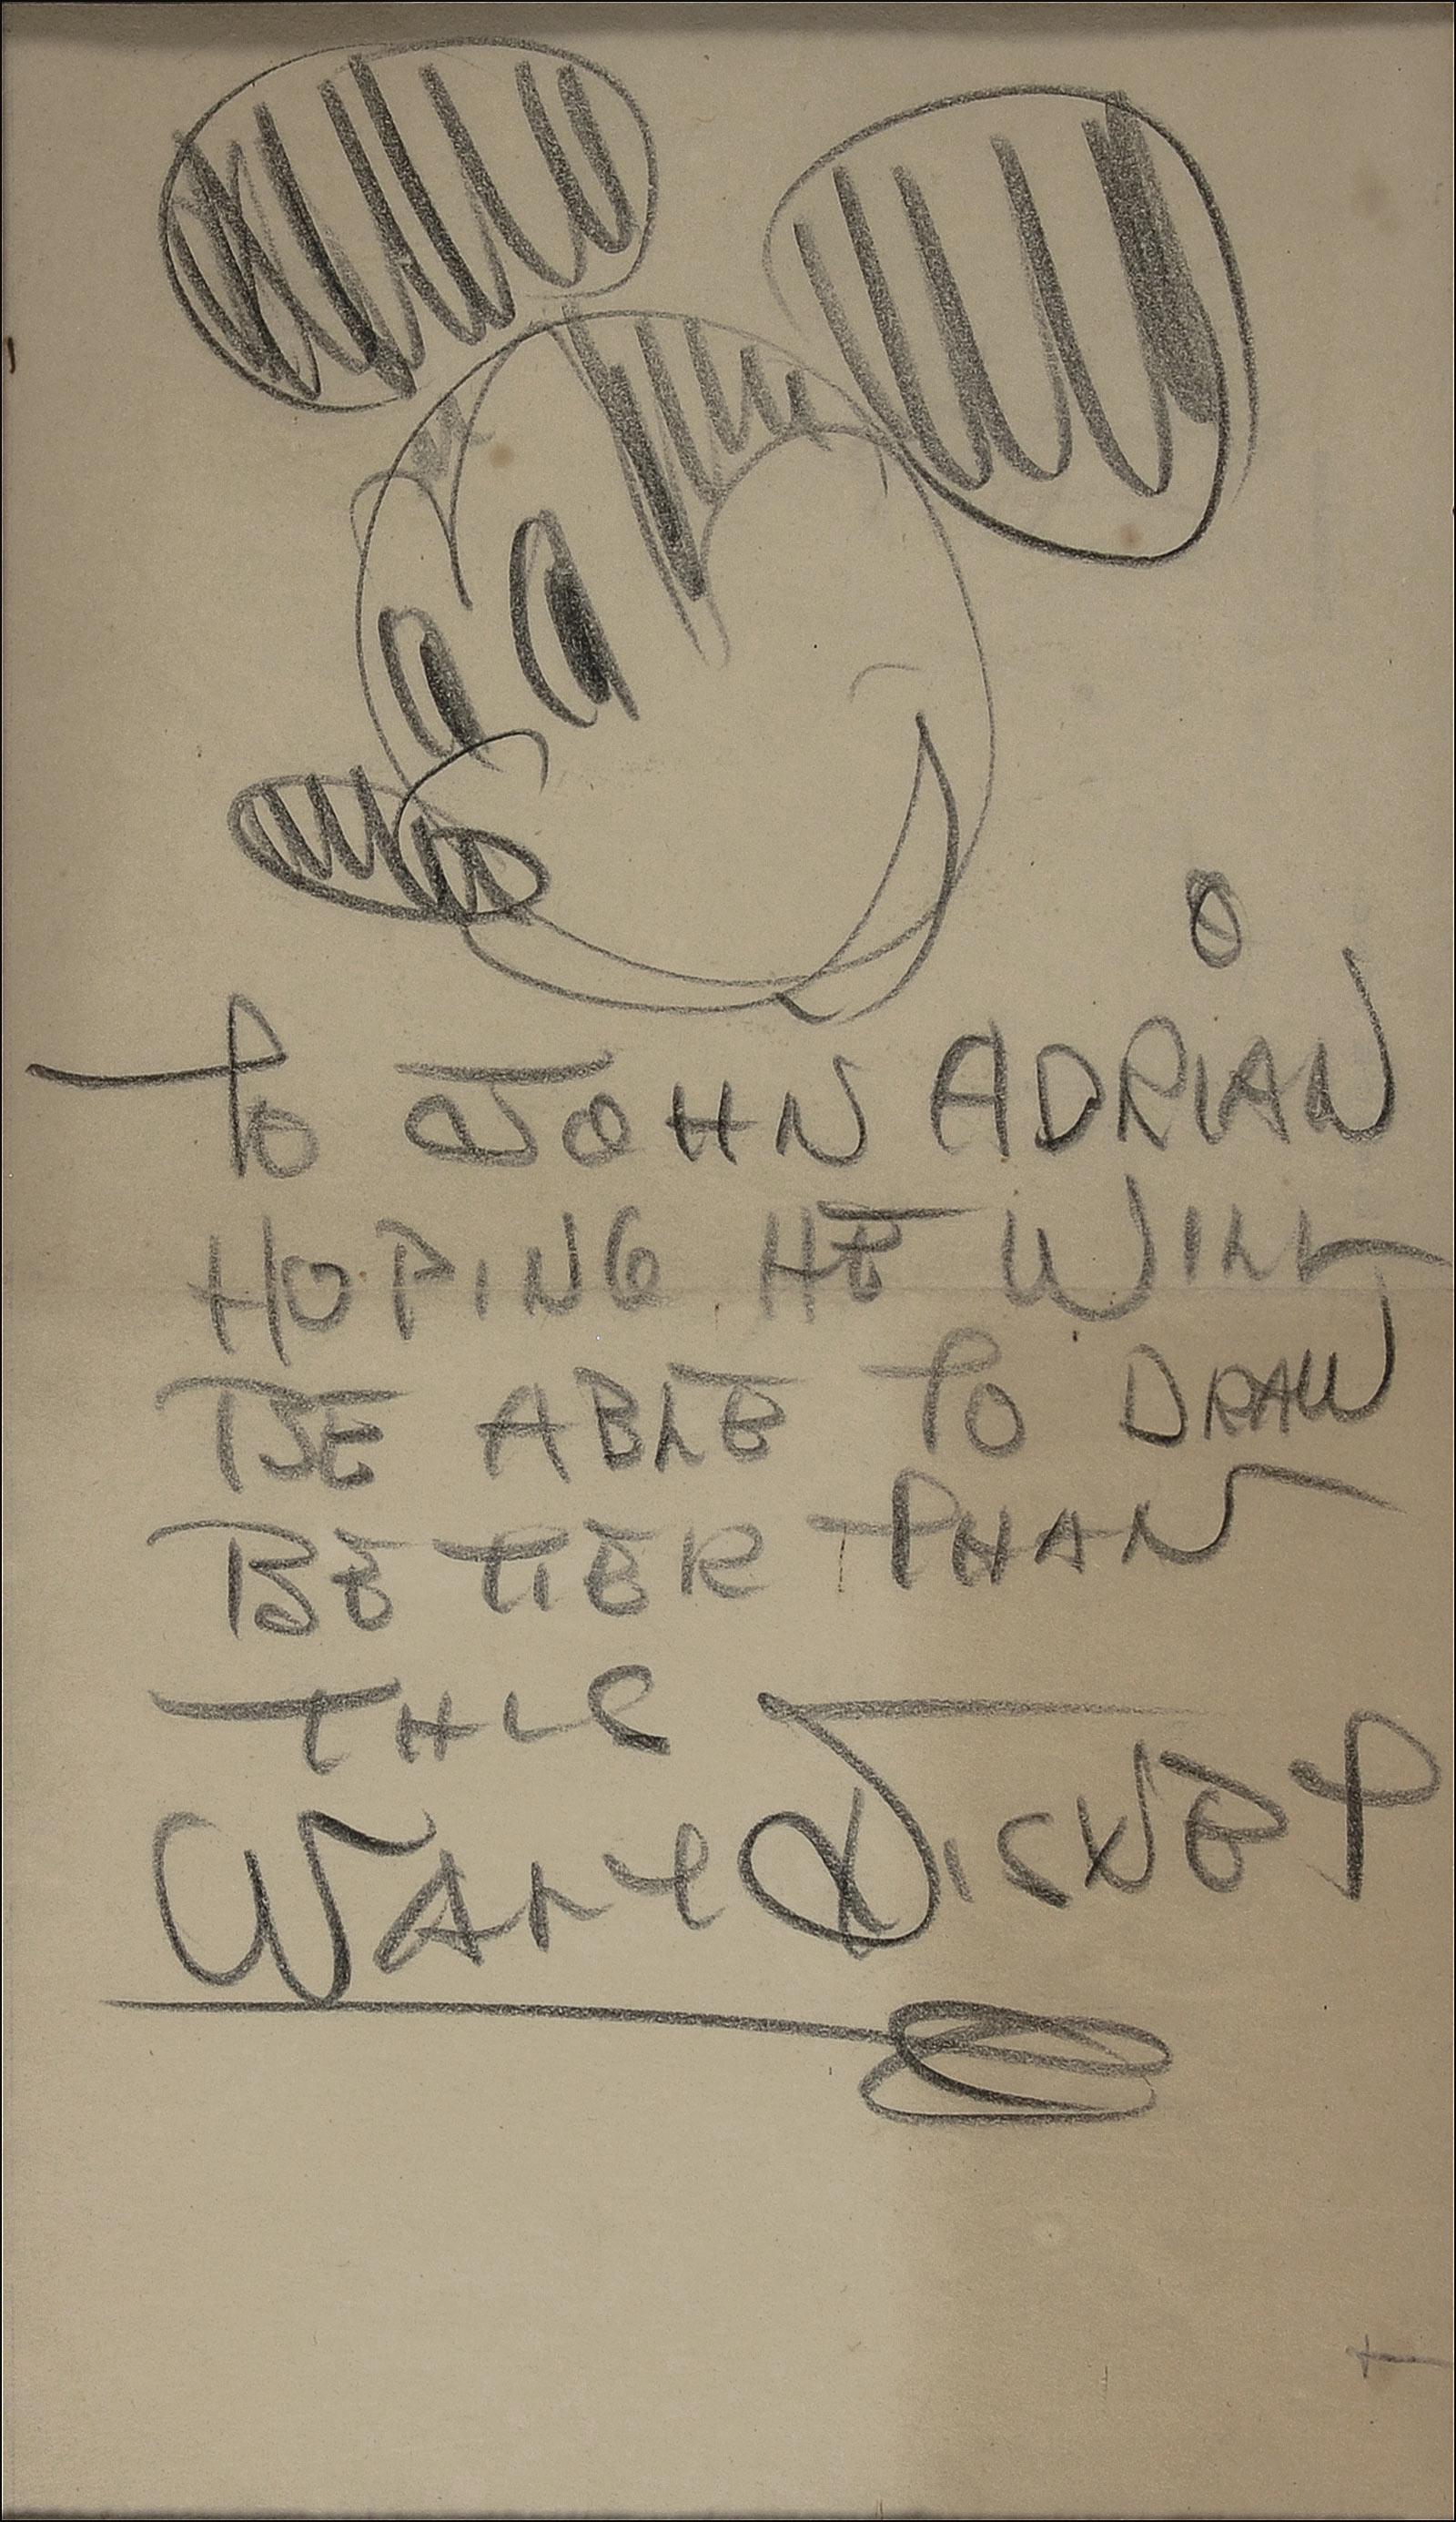 TO JOHN ADRIAN
HOPING HE WILL
BE ABLE TO DRAW
BETTER THAN
THIS
WALT DISNEY